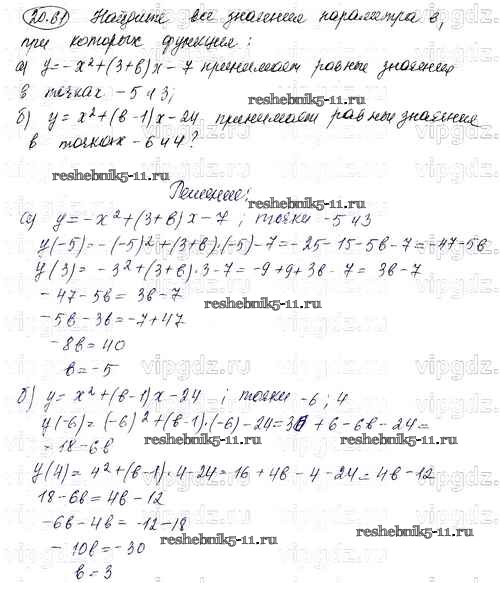 20.81 Найдите все значения параметра в,
при которых функция:
а) y=-x²+(3+в)x-7 принимает равные значения
в точках -5 и 3;
б) y=x²+(в-1)x-24 принимает равные значение
в точках -6 и 4?
reshebnik5-11.ru
reshebnik5-11.ru
Решение:
а) y=-x²+(3+в)x-7; точки -5 и 3
y(-5)=-(-5)²+(3+в)·(-5)-7=-25-15-5в-7=-47-5в
y(3)=-3²+(3+в)·3-7=-9+9+3в-7=3в-7
-47-5в=3в-7
reshebnik5-11.ru
-5в-3в=-7+47
-8в=40
в=-5
б) y=x²+(в-1)x-24; точки -6; 4
y(-6)=(-6)²+(в-1)·(-6)-24=36+6-6в-24=
-18-6в
reshebnik5-11.ru
y(4)=4²+(в-1)·4-24=16+4в-4-24=4в-12
18-6в=4в-12
reshebnik5-11.ru
-6в-4в=-12-18
-10в=-30
reshebnik5-11.ru
в=3
vipgdz.ru